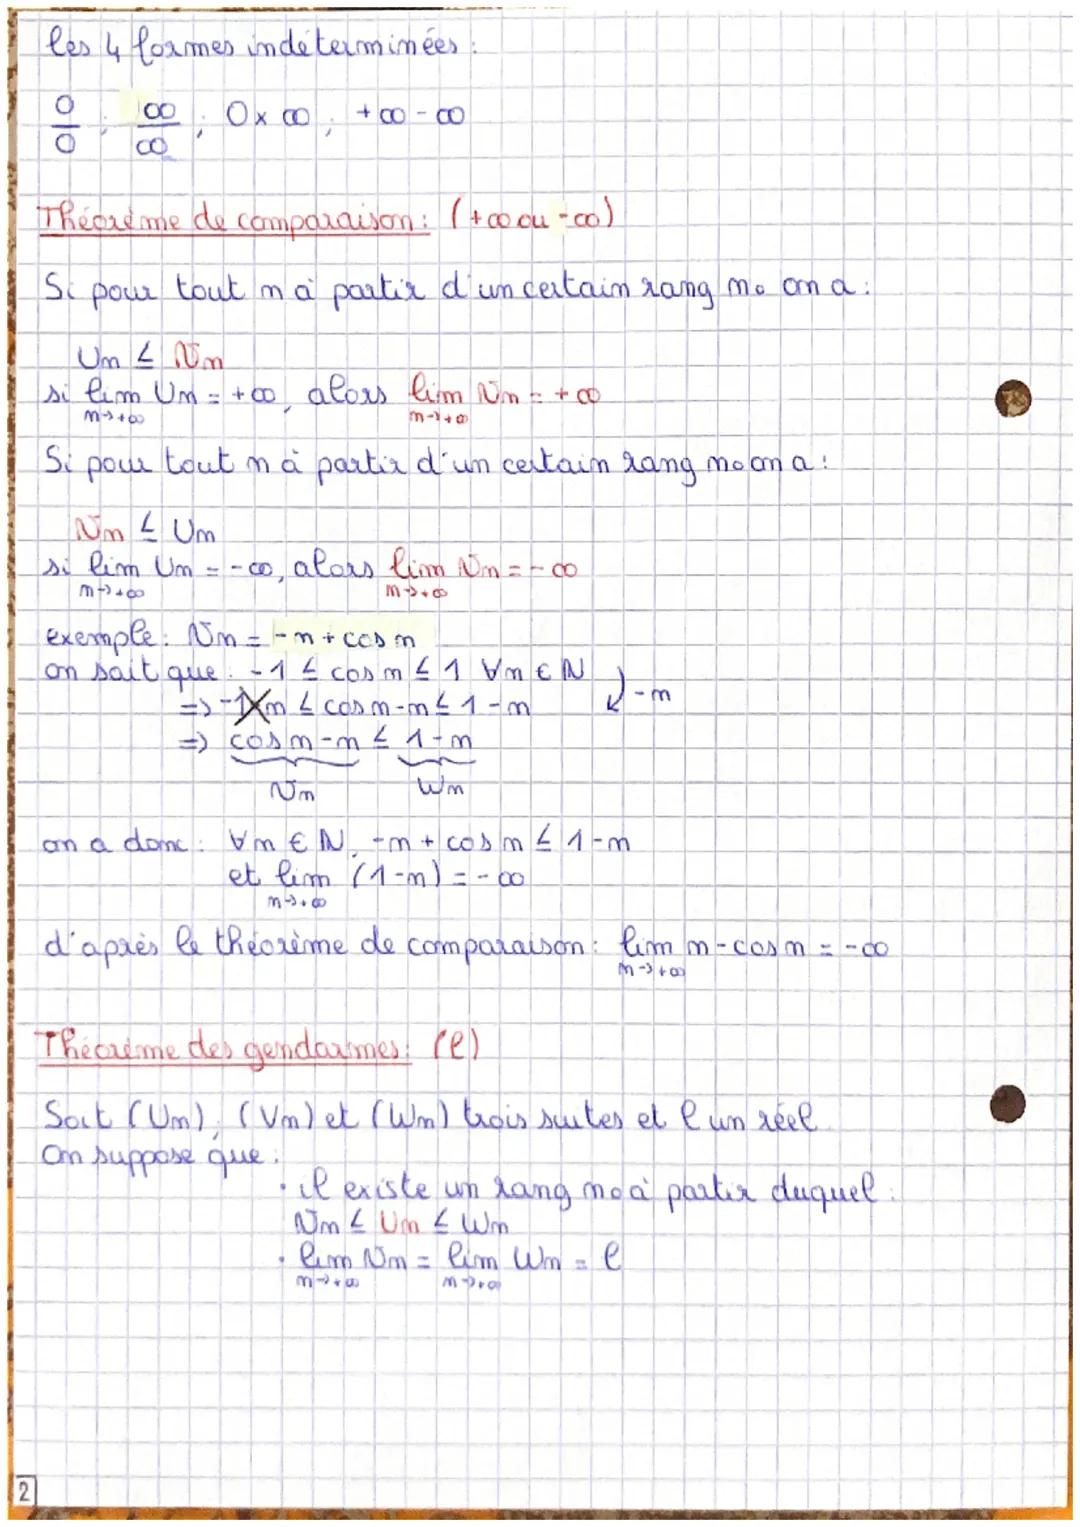 les 4 formes indéterminées :
0/0 ; ∞/∞ ; 0×∞ ; +∞-∞
Théorème de comparaison : (+∞ ou -∞)
Si pour tout n à partir d'un certain rang n₀ on a :
Un ≤ Vn
si lim Un = +∞, alors lim Vn = +∞
n→+∞ n→+∞
Si pour tout n à partir d'un certain rang n₀ on a :
Vn ≤ Un
si lim Un = -∞, alors lim Vn = -∞
n→+∞ n→+∞
exemple : Vn = -n + cos n
on sait que : -1 ≤ cos n ≤ 1 ∀n ∈ N
=> -1-n ≤ cos n-n ≤ 1-n -n
=> cos n-n ≤ 1-n
Vn Wn
on a donc : ∀n ∈ N, -n + cos n ≤ 1-n
et lim (1-n) = -∞
n→+∞
d'après le théorème de comparaison : lim n-cos n = -∞
n→+∞
Théorème des gendarmes : (l)
Soit (Un), (Vn) et (Wn) trois suites et l un réel
On suppose que :
• il existe un rang n₀ à partir duquel :
Vn ≤ Un ≤ Wn
• lim Vn = lim Wn = l
n→+∞ n→+∞
2